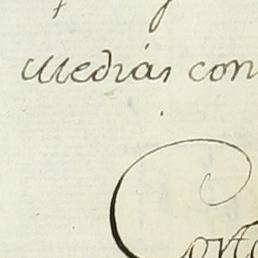 medias con
Corte